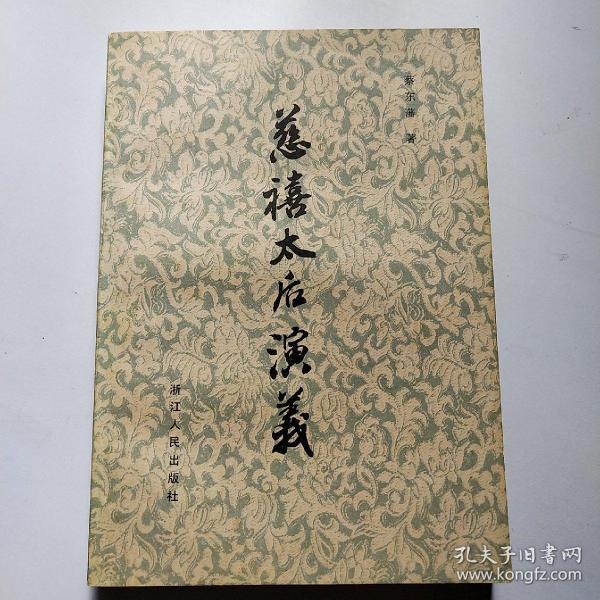 蔡东藩 著
慈禧太后演義
浙江人民出版社
孔夫子旧书网
www.kongfz.com